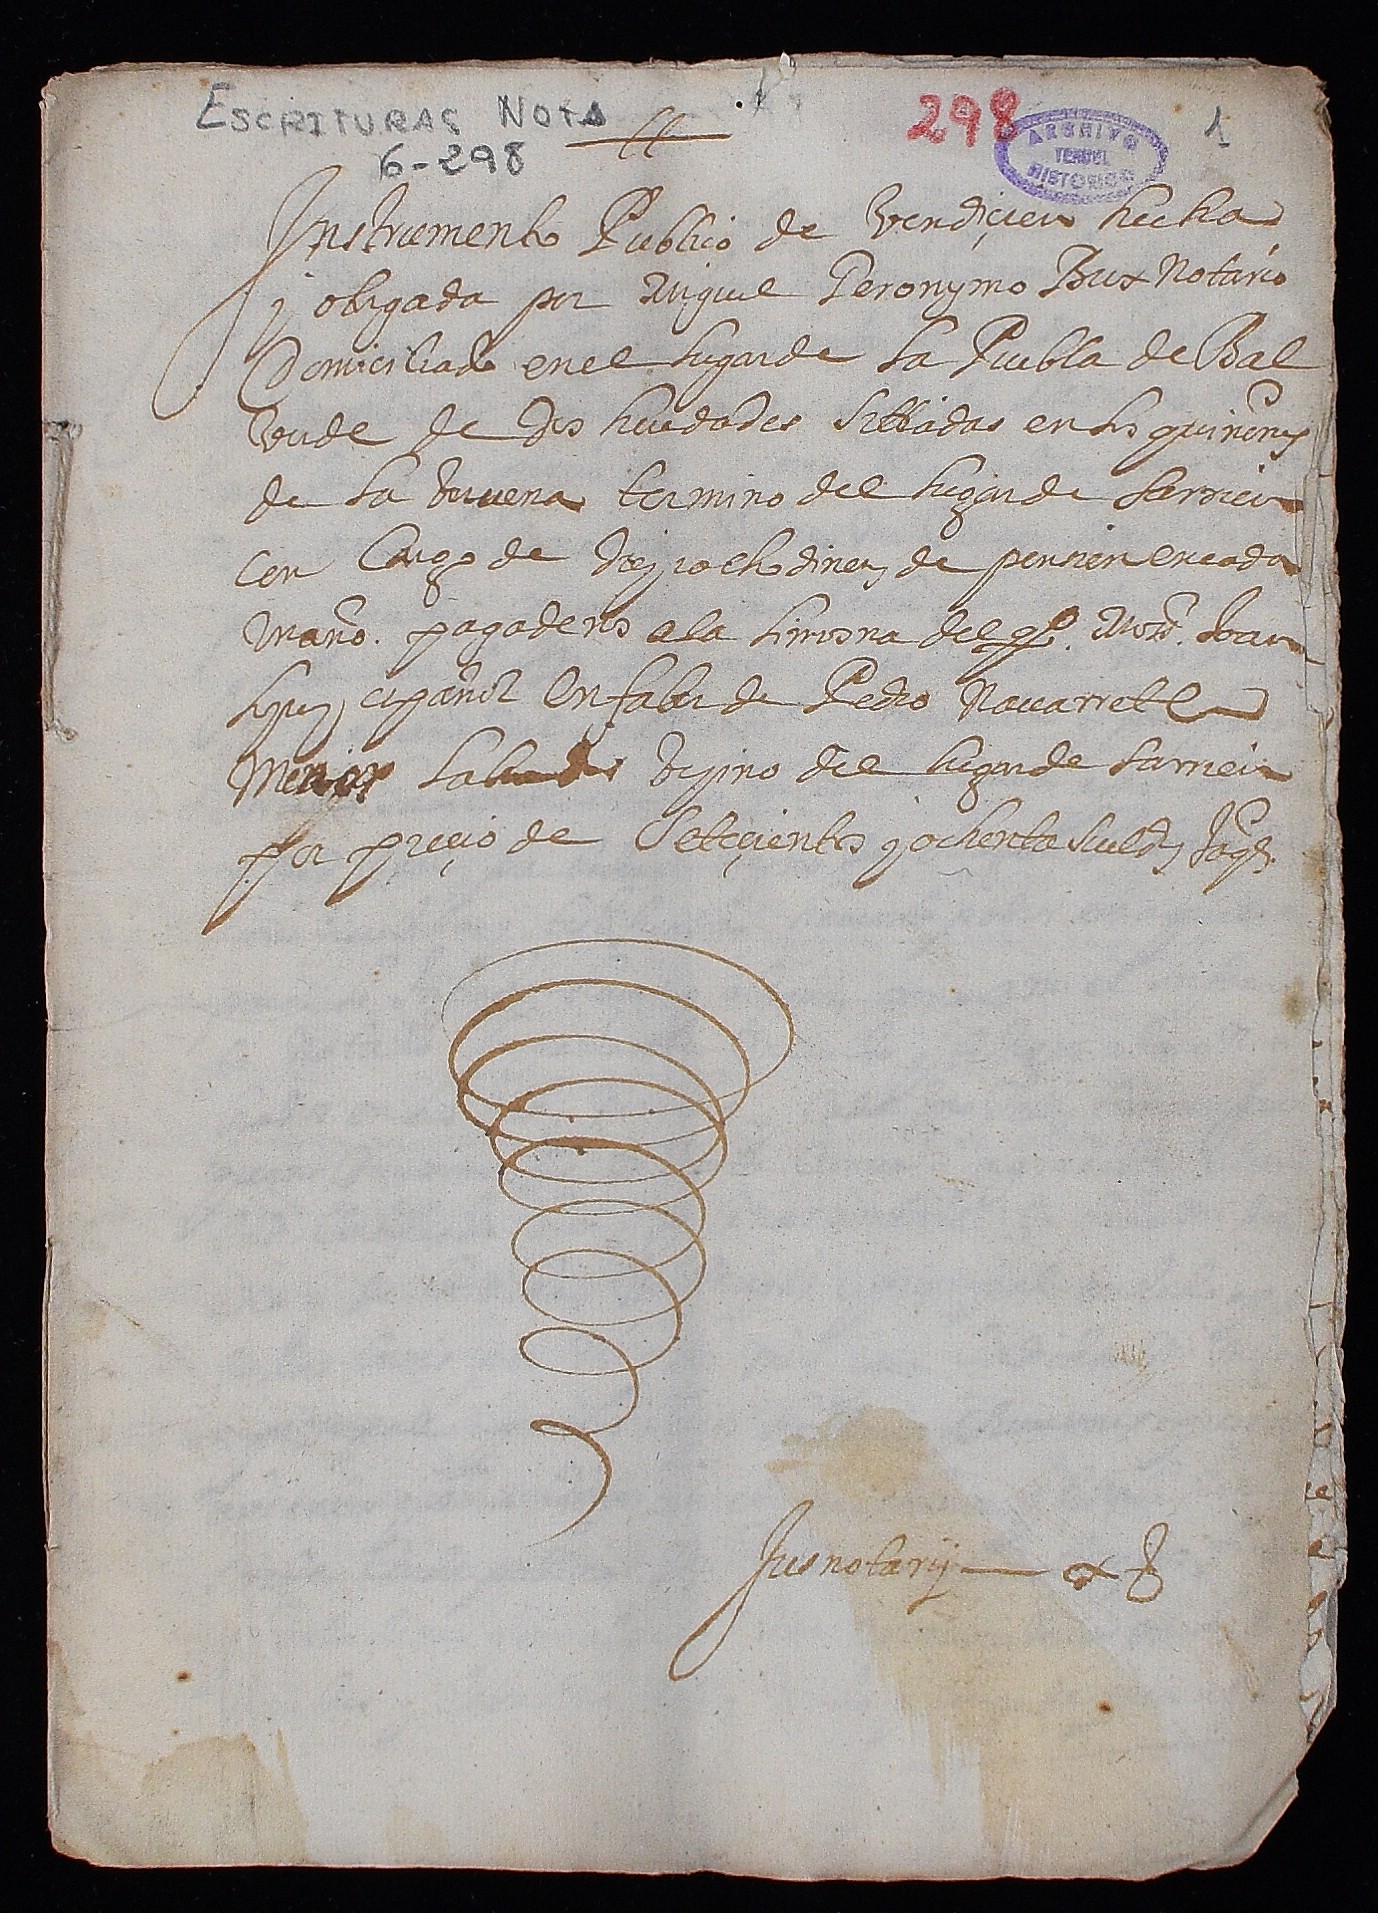 ESCRITURAS NOTA
6-298
298
ARCHIVO
TERUEL
HISTORICO
1
Instrumento Publico de Vendicien hecha
y obligada por Miguel Geronymo Bux Notario
Domiciliado en el lugar de La Puebla de Bal
Verde de dos heredades sittiadas en los quiñones
de la termino del lugar de Sarrion
con Cargo de diez y ocho dineros de pension en cada
Un año. pagaderos a la limosna del qº. Mosn. Joan
lopez español En fabor de Pedro Nauarrete
Menor labrador Vezino del lugar de Sarrion
por precio de Setecientos y ochenta sueldos Jaqs.
Jus notarij